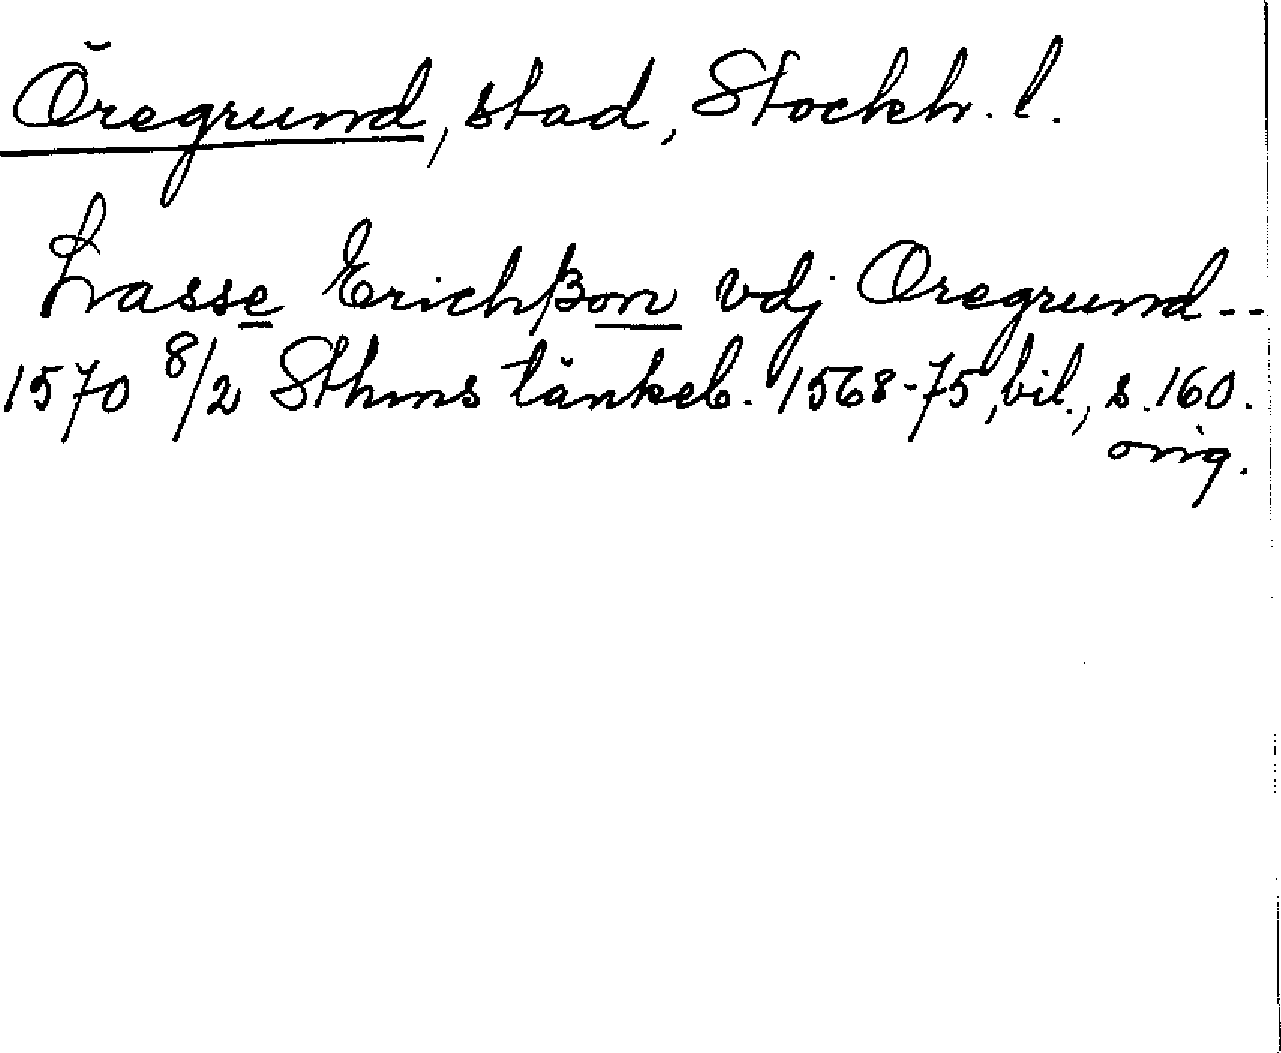 Öregrund, stad, Stockh. l.
Lasse Erichßon vdj Oregrund--
1570 8/2 Sthms tänkeb. 1568-75, bil., s. 160.
orig.